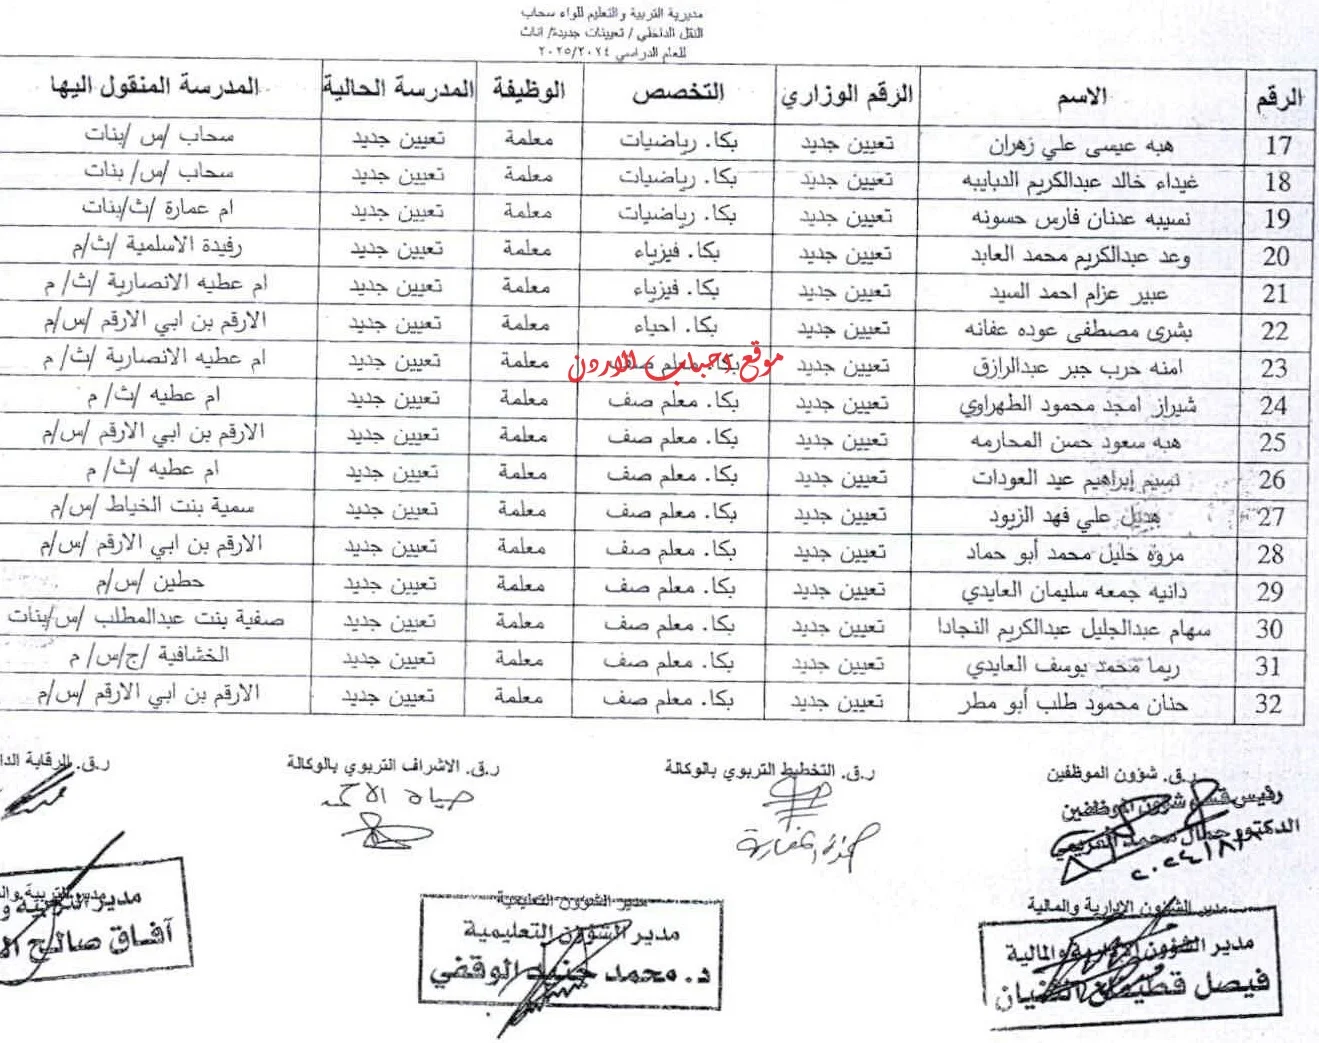 مديرية التربية والتعليم للواء سحاب
النقل الداخلي / تعيينات جديدة/ اناث
للعام الدراسي ٢٠٢٥/٢٠٢٤
الرقم الاسم الرقم الوزاري التخصص الوظيفة المدرسة الحالية المدرسة المنقول اليها
17 هبه عيسى علي زهران تعيين جديد بكا. رياضيات معلمة تعيين جديد سحاب /س /بنات
18 غيداء خالد عبدالكريم الدبايبه تعيين جديد بكا. رياضيات معلمة تعيين جديد سحاب /س/ بنات
19 نسيبه عدنان فارس حسونه تعيين جديد بكا. رياضيات معلمة تعيين جديد ام عمارة /ث/بنات
20 وعد عبدالكريم محمد العابد تعيين جديد بكا. فيزياء معلمة تعيين جديد رفيدة الاسلمية /ث/م
21 عبير عزام احمد السيد تعيين جديد بكا. فيزياء معلمة تعيين جديد ام عطيه الانصارية /ث/ م
22 بشرى مصطفى عوده عفانه تعيين جديد بكا. احياء معلمة تعيين جديد الارقم بن ابي الارقم /س/م
23 امنه حرب جبر عبدالرازق تعيين جديد بكا. معلم صف معلمة تعيين جديد ام عطيه الانصارية /ث/ م
موقع احباب الاردن
24 شيراز امجد محمود الطهراوي تعيين جديد بكا. معلم صف معلمة تعيين جديد ام عطيه /ث/ م
25 هبه سعود حسن المحارمه تعيين جديد بكا. معلم صف معلمة تعيين جديد الارقم بن ابي الارقم /س/م
26 نسيم إبراهيم عيد العودات تعيين جديد بكا. معلم صف معلمة تعيين جديد ام عطيه /ث/ م
27 هديل علي فهد الزيود تعيين جديد بكا. معلم صف معلمة تعيين جديد سمية بنت الخياط /س/م
28 مروه خليل محمد أبو حماد تعيين جديد بكا. معلم صف معلمة تعيين جديد الارقم بن ابي الارقم /س/م
29 دانيه جمعه سليمان العايدي تعيين جديد بكا. معلم صف معلمة تعيين جديد حطين /س/م
30 سهام عبدالجليل عبدالكريم النجادا تعيين جديد بكا. معلم صف معلمة تعيين جديد صفية بنت عبدالمطلب /س/بنات
31 ريما محمد يوسف العايدي تعيين جديد بكا. معلم صف معلمة تعيين جديد الخشافية /ج/س/ م
32 حنان محمود طلب أبو مطر تعيين جديد بكا. معلم صف معلمة تعيين جديد الارقم بن ابي الارقم /س/م
ر.ق. شؤون الموظفين ر.ق. التخطيط التربوي بالوكالة ر.ق. الاشراف التربوي بالوكالة ر.ق. الرقابة الدا
رئيس قسم شؤون الموظفين
الدكتور جمال محمد
مدير الشؤون الإدارية والمالية مدير الشؤون التعليمية مدير التربية وال
مدير الشؤون الإدارية والمالية مدير الشؤون التعليمية مدير التربية و
فيصل د. محمد جنيد الوقفي آفاق صالح